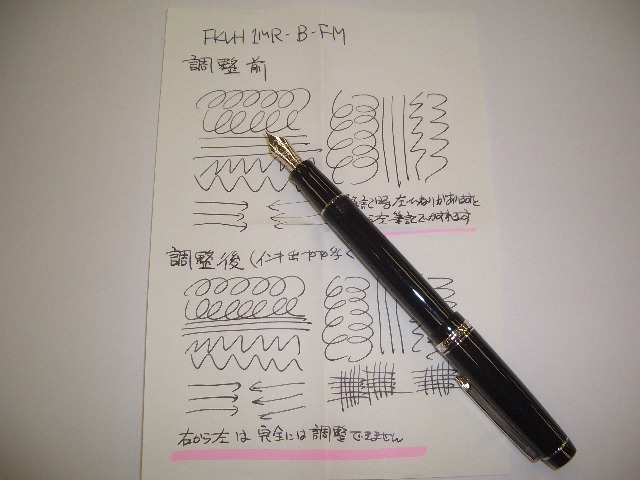 FKVH 1MR-B-FM
調整前
筆記時左ひねりがありますと
右から左筆記でかすれます
調整後(インキ出やや多く
右から左は完全には調整できません